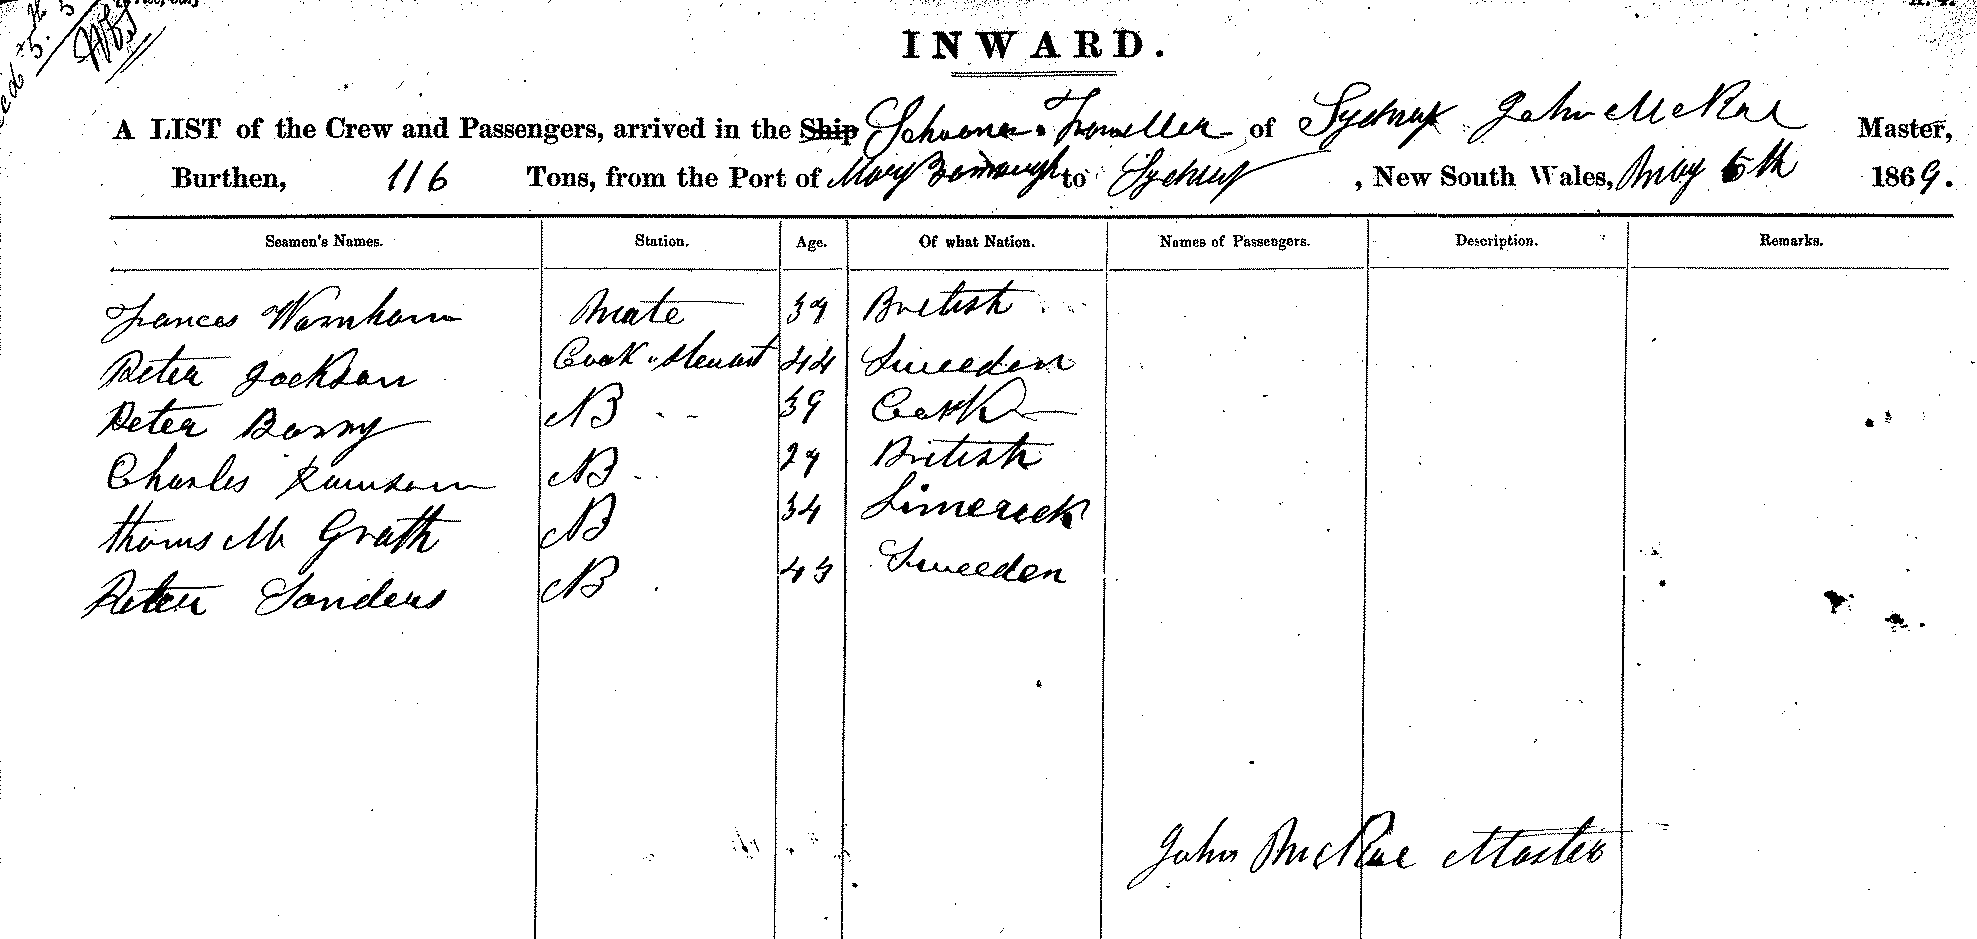 INWARD.
A LIST of the Crew and Passengers, arrived in the Ship Schooner Traveller of Sydney John McRae Master,
Burthen, 116 Tons, from the Port of Mary Borrough to Sydney, New South Wales, May 5th 1869.
Seamen's Names. Station. Age. Of what Nation. Names of Passengers. Description. Remarks.
Frances Warnham Mate 39 British
Peter Jackson Cook & Steuart 44 Sweeden
Peter Barry AB 39 Cork
Charles Ramsom AB 29 British
thoms Mc Grath AB 34 Limereck
Peter Sanders AB 43 Sweeden
John McRae Master